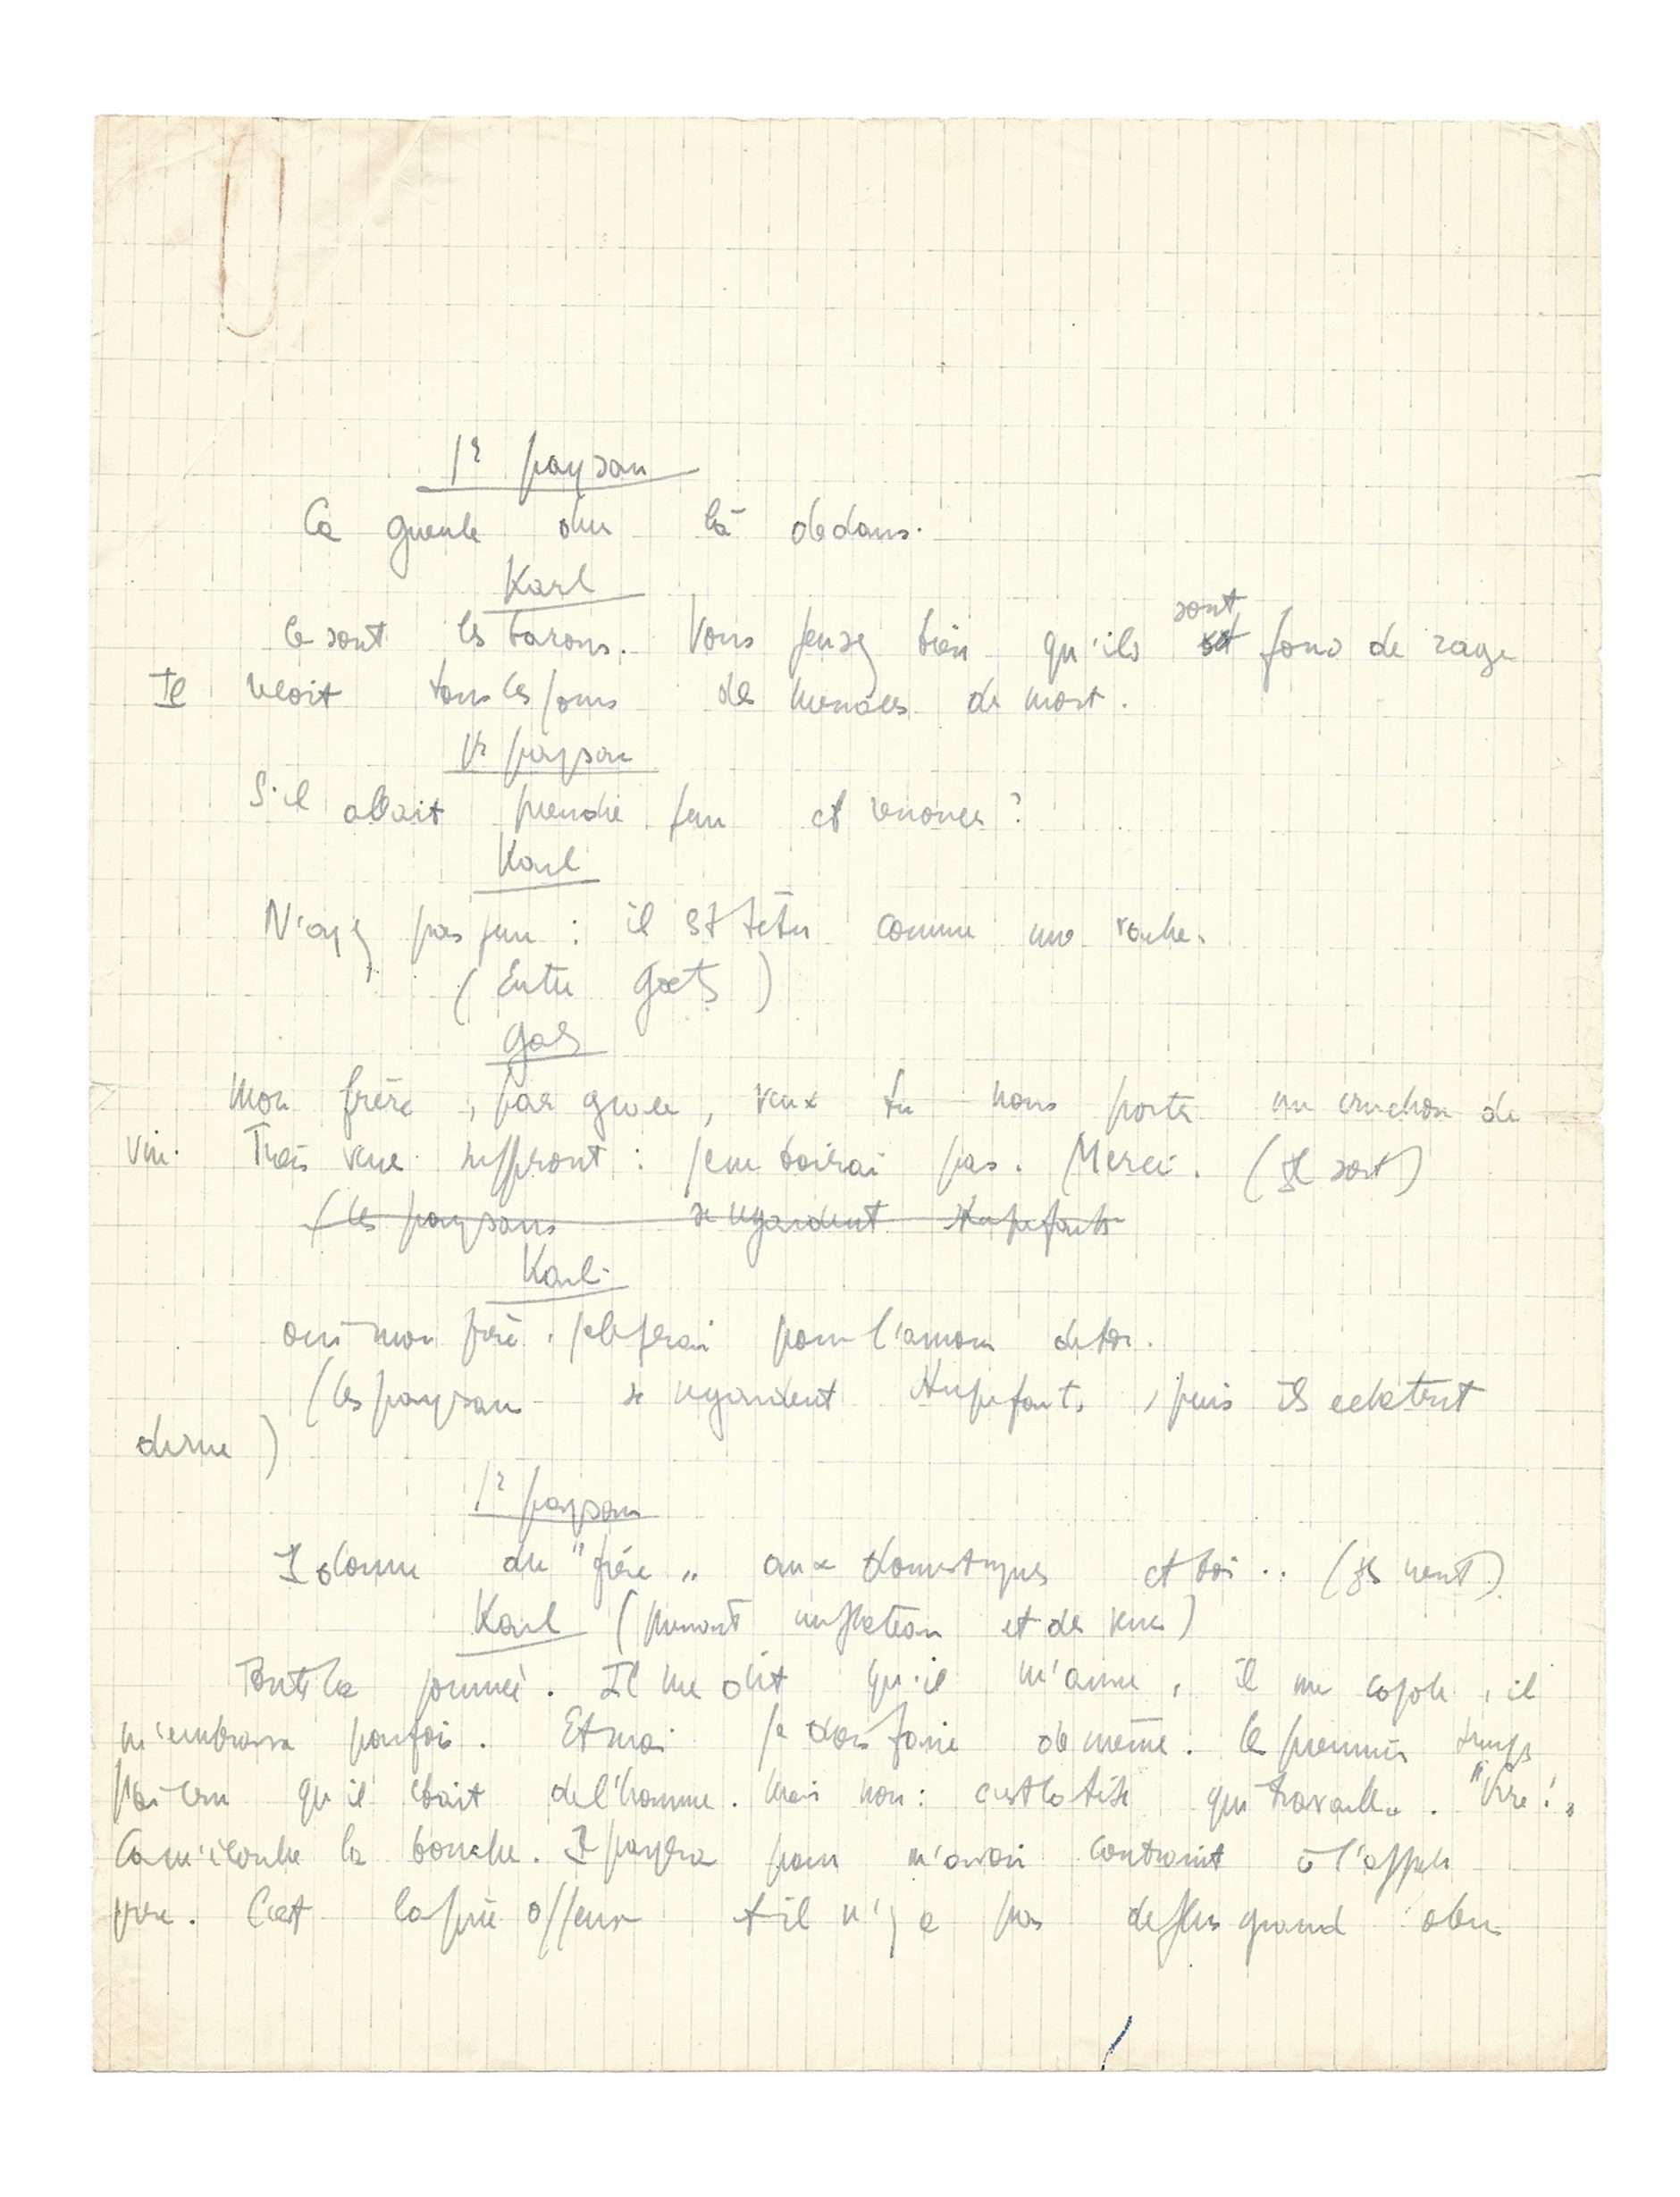 1r paysan
Ca gueule dur là dedans.
Karl
Ce sont les barons. Vous pensez bien qu'ils sont fous de rage
Il reçoit tous les jours des menaces de mort.
1r paysan
S'il allait prendre peur et renoncer ?
Karl
N'ayez pas peur : il est têtu comme une
(Entre Goetz)
Goetz
Mon frère, par grâce, veux tu nous porter un cruchon de
vin. Trois verres suffiront : je n'en boirai pas. Merci. (Il sort)
(les paysans se regardent stupéfaits
Karl
oui mon frère. je le ferai pour l'amour de toi.
(les paysans se regardent stupéfaits, puis ils eclatent
de rire)
1r paysan
I donne du "frère" aux domestiques et toi .. (Ils rient)
Karl (prenant un plateau et des verres)
Toute la journée. Il me dit qu'il m'aime, il me cajole, il
m'embrasse parfois. Et moi je dois faire de même. les premiers temps
j'ai cru qu'il était de l'homme. Mais non : c'est la tête qui travaille. "Frère!"
Ca m'écorche la bouche. Il paylera pour m'avoir contraint à l'appeler
frère. C'est la pire offense et il n'y a pas de plus grand abus